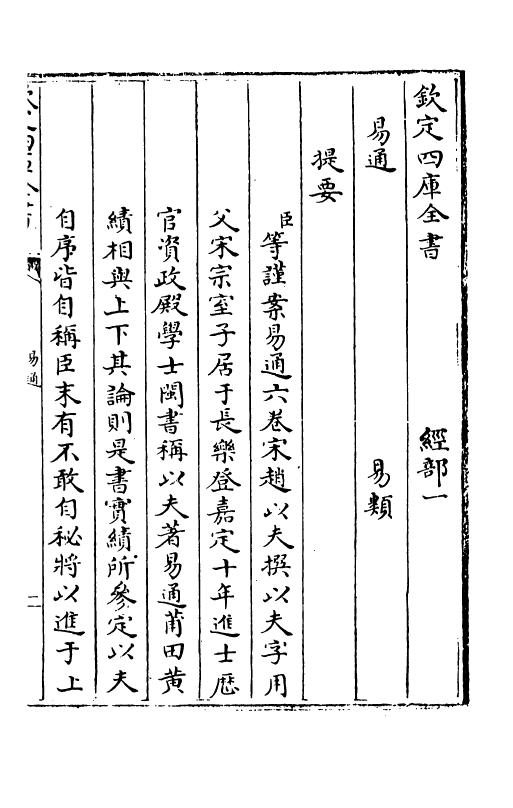 欽定四庫全書　經部一
易通　易類
提要
臣等謹案易通六卷宋趙以夫撰以夫字用
父宋宗室子居于長樂登嘉定十年進士歷
官資政殿學士閩書稱以夫著易通莆田黄
績相與上下其論則是書實績所參定以夫
自序皆自稱臣末有不敢自秘將以進于上
易通
二